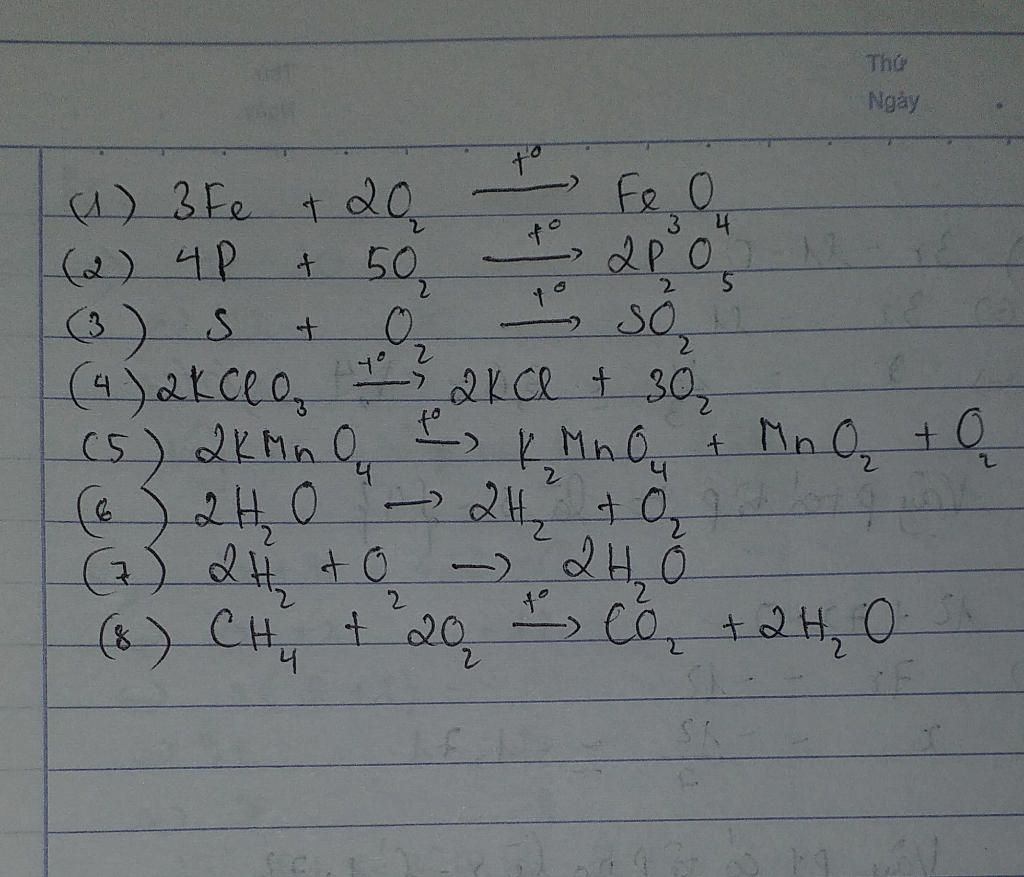 Thứ
Ngày
(1) 3Fe + 2O₂ —t°→ Fe₃O₄
(2) 4P + 5O₂ —t°→ 2P₂O₅
(3) S + O₂ —t°→ SO₂
(4) 2KClO₃ —t°→ 2KCl + 3O₂
(5) 2KMnO₄ —t°→ K₂MnO₄ + MnO₂ + O₂
(6) 2H₂O → 2H₂ + O₂
(7) 2H₂ + O₂ → 2H₂O
(8) CH₄ + 2O₂ —t°→ CO₂ + 2H₂O